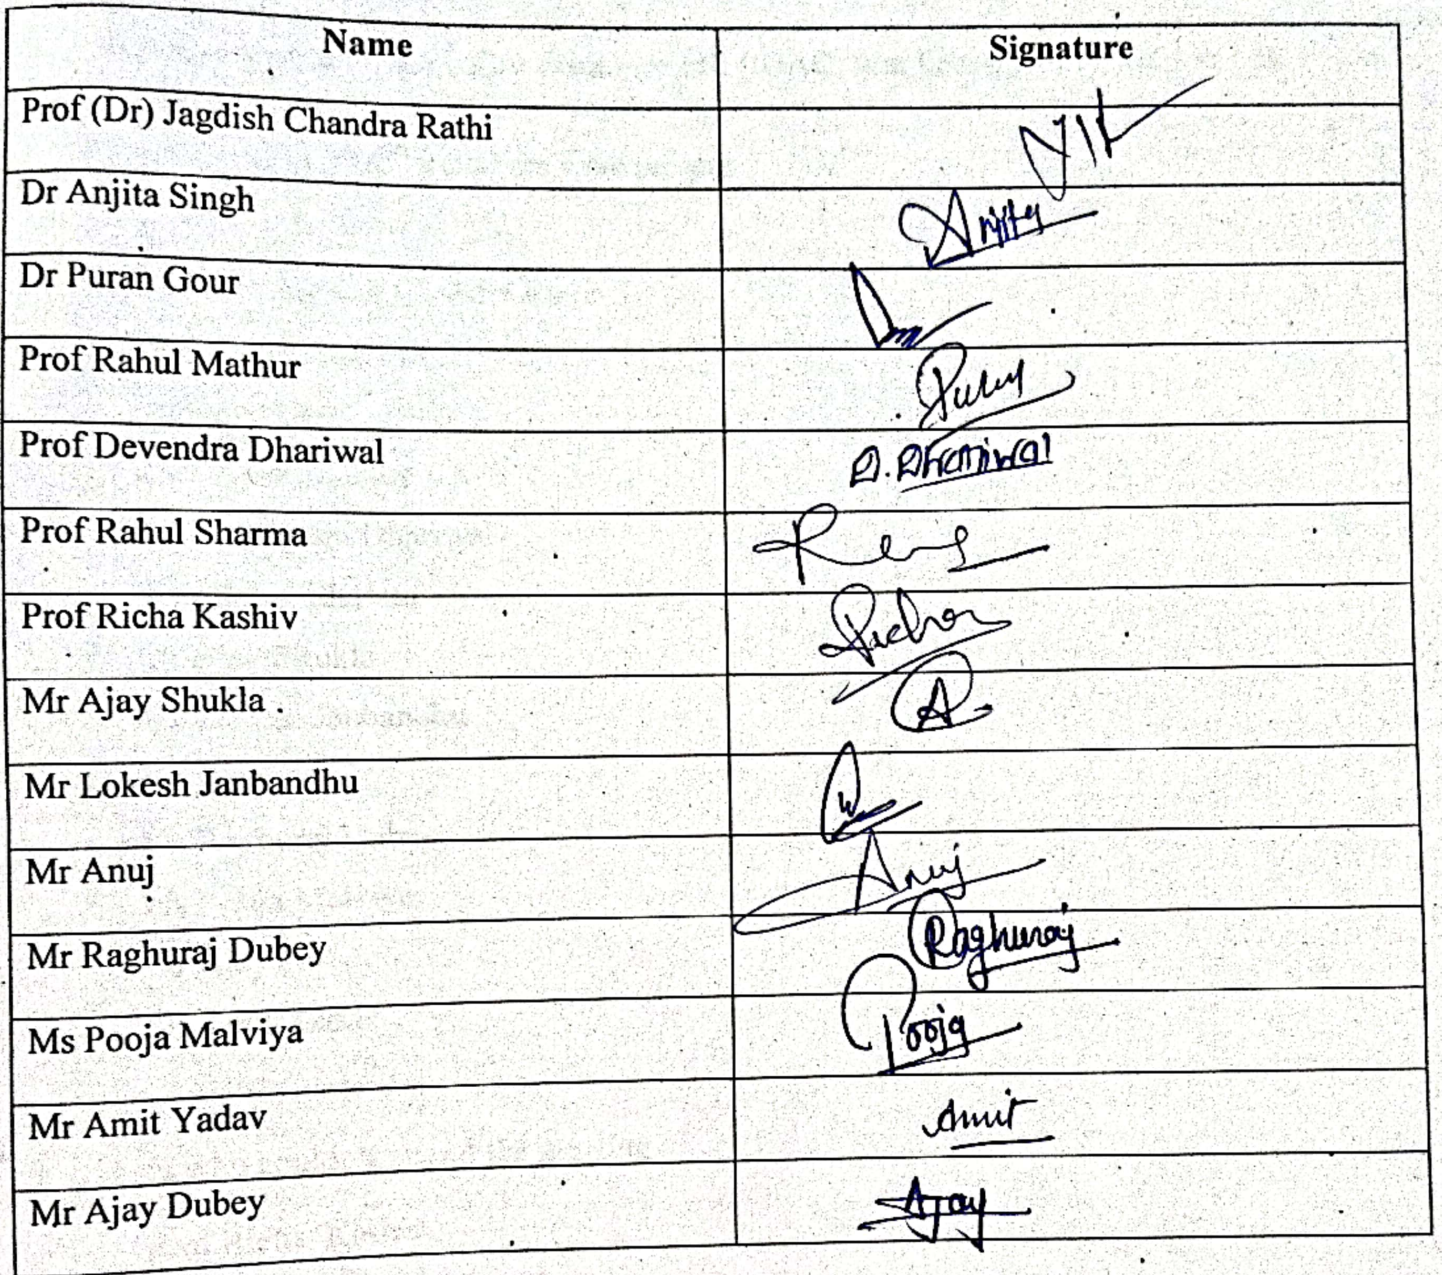 Name Signature
Prof (Dr) Jagdish Chandra Rathi
Dr Anjita Singh Anjita
Dr Puran Gour
Prof Rahul Mathur
Prof Devendra Dhariwal D. Dhariwal
Prof Rahul Sharma
Prof Richa Kashiv
Mr Ajay Shukla . A
Mr Lokesh Janbandhu
Mr Anuj Anuj
Mr Raghuraj Dubey Raghuraj
Ms Pooja Malviya Pooja
Mr Amit Yadav Amit
Mr Ajay Dubey Ajay